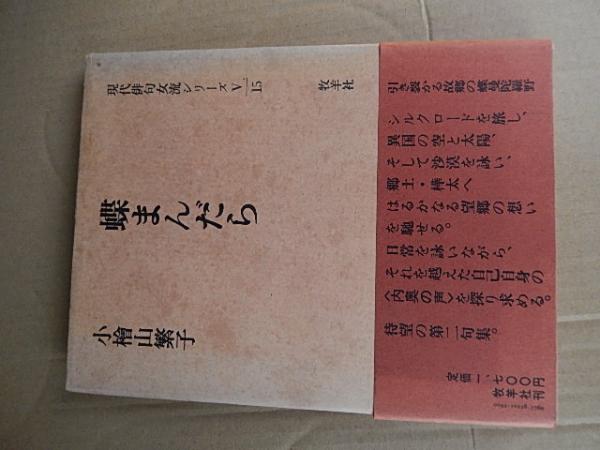 現代俳句女流シリーズV 15
牧羊社
蝶まんだら
小檜山繁子
引き裂かる故郷の蝶曼陀羅野
シルクロードを旅し、
異国の空と太陽、
そして沙漠を詠い、
郷土・樺太へ
はるかなる望郷の想い
を馳せる。
日常を詠いながら、
それを越えた自己自身の
〈内奥の声〉を探り求める。
待望の第二句集。
定価一、七〇〇円
牧羊社刊